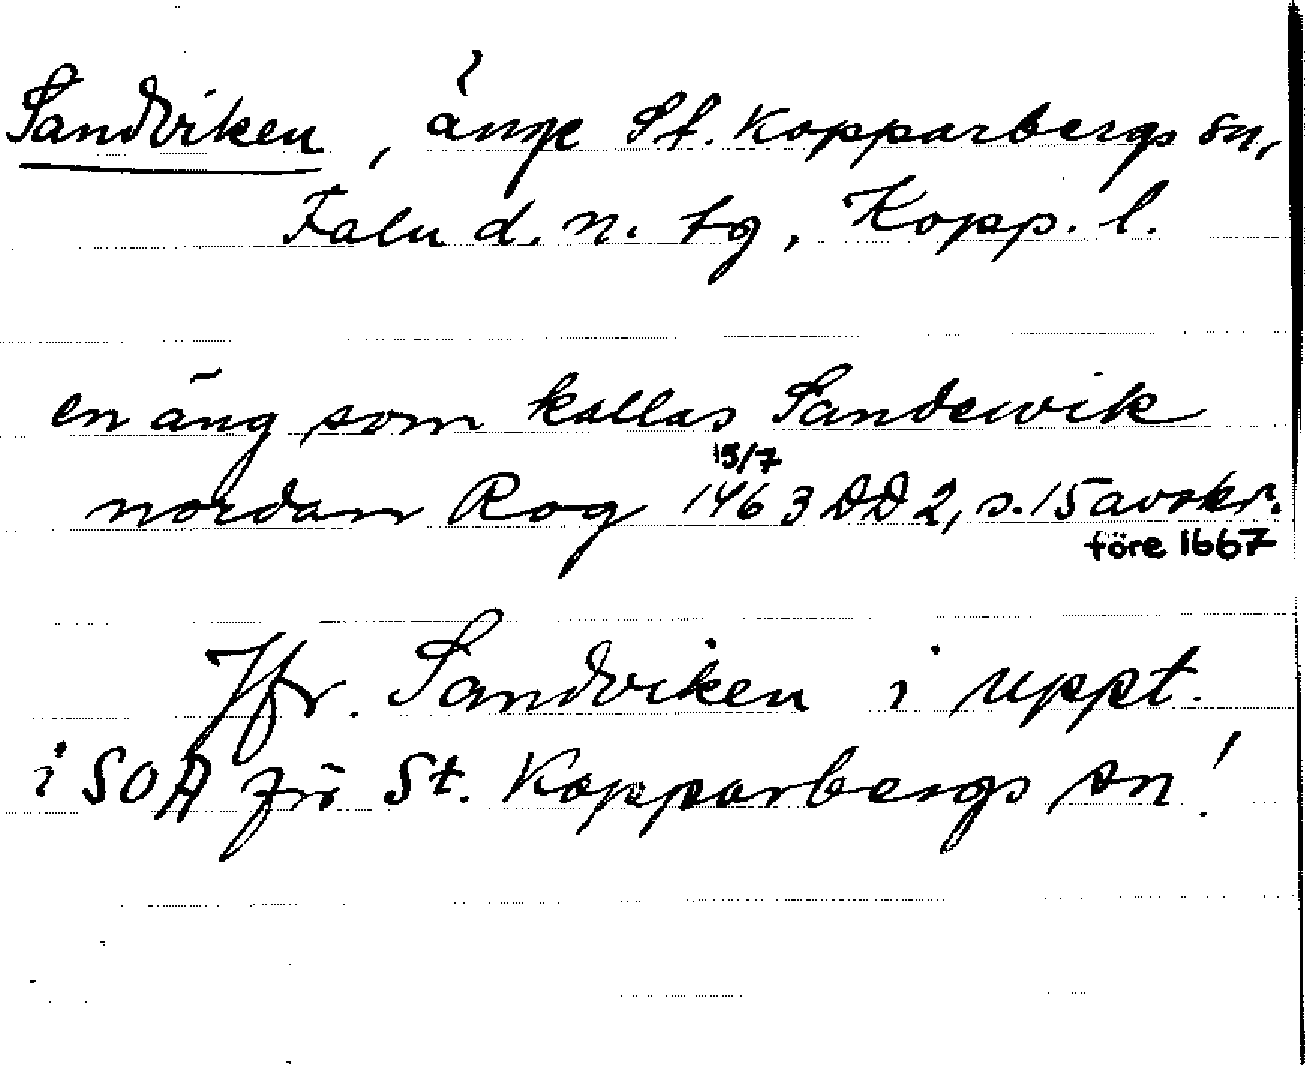 Sandviken, änge St. Kopparbergs sn,
Falu d. n. tg, Kopp. l.
en äng som kallas Sandewik
15/7
nordan Rog 1463 DD 2, s. 15 avskr.
före 1667
Jfr. Sandviken i uppt.
i SOA för St. Kopparbergs sn!